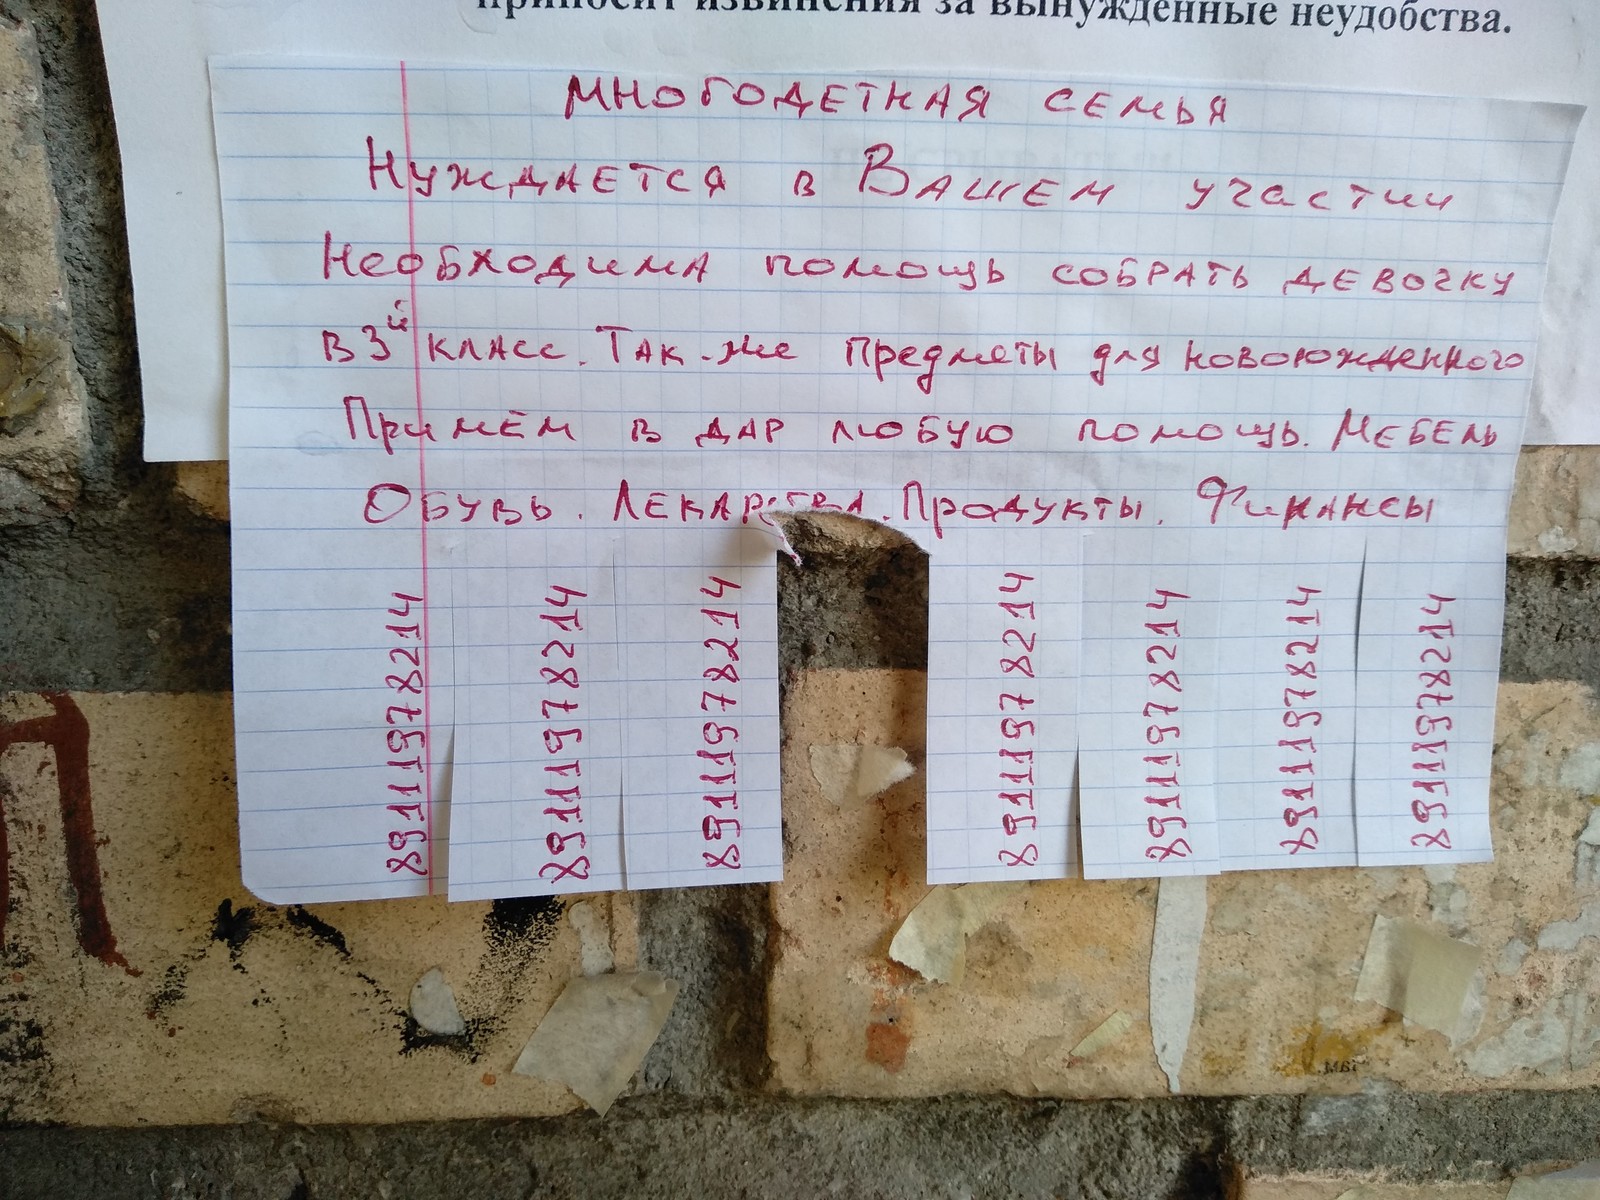 приносит извинения за вынужденные неудобства.
МНОГОДЕТНАЯ СЕМЬЯ
НУЖДАЕТСЯ в ВАШЕМ участии
НеобХодимА помощь СОБРАТЬ ДЕВОЧКУ
в 3й КЛАСС. ТАК-же предметы для новоюжденного
Примём в ДАР любую помощь. МЕБЕЛЬ
Обувь. ЛЕКАРСТВА. Продукты. Финансы
89111978214
89111978214
89111978214
89111978214
89111978214
89111978214
89111978214